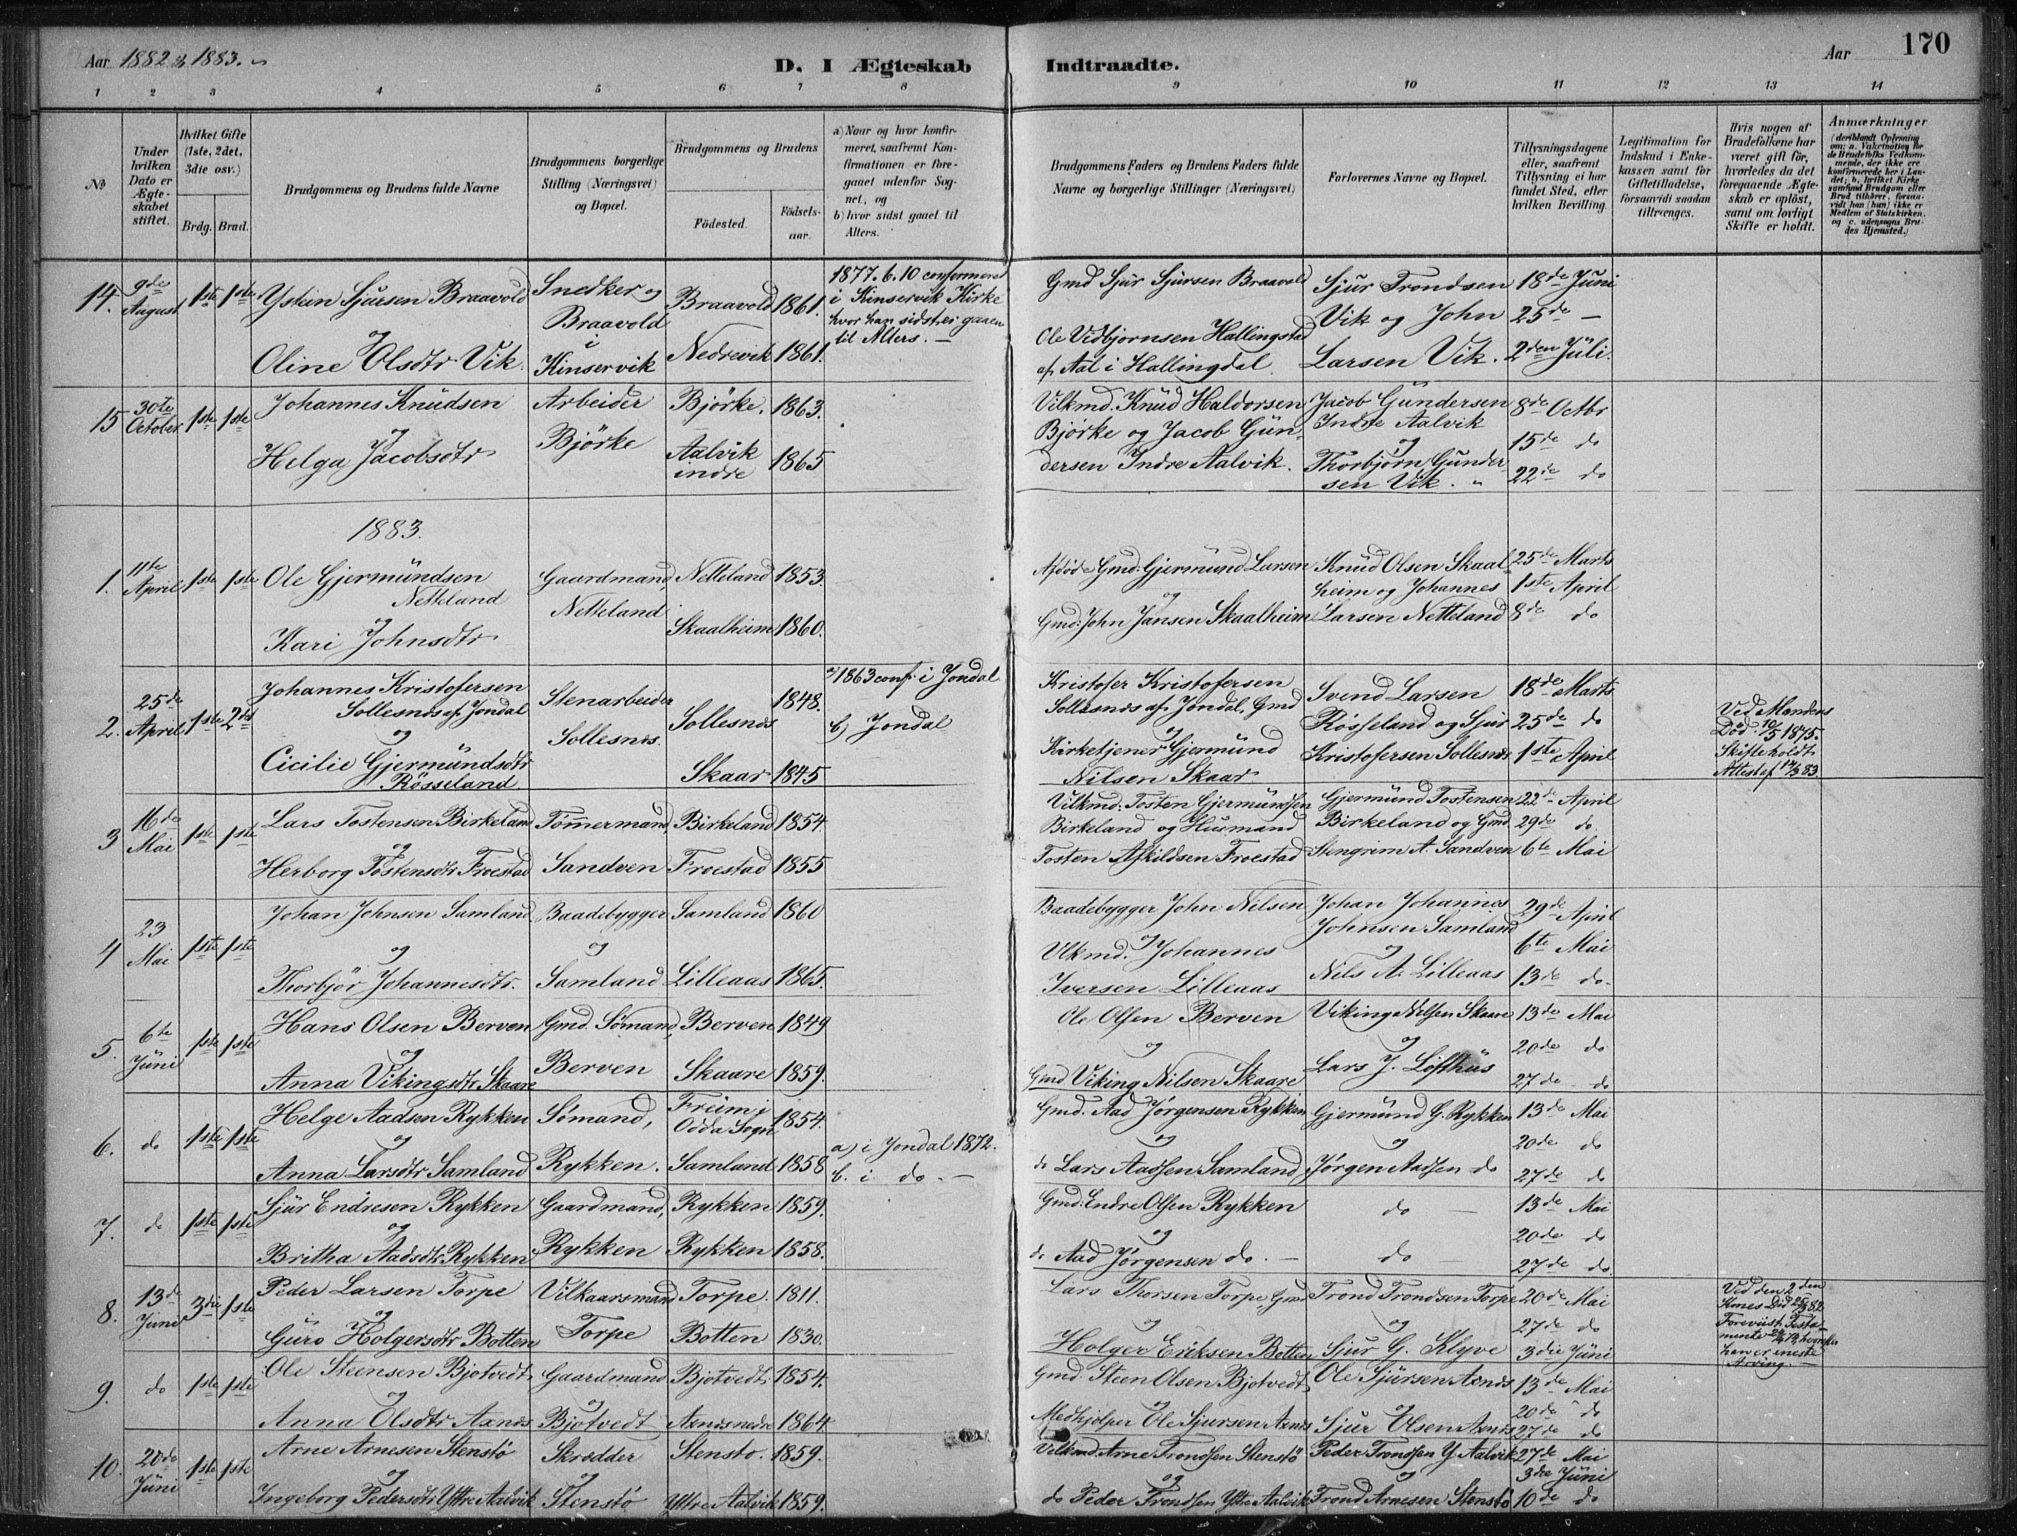 Aar 1882 & 1883.
D. I Ægteskab Indtraadte.
Aar 170
1 2 3 4 5 6 7 8 9 10 11 12 13 14
№
Under hvilken Dato er Ægteskabet stiftet.
Hvilket Gifte (1ste, 2det, 3die osv.)
Brdg. Brud.
Brudgommens og Brudens fulde Navne
Brudgommens borgerlige Stilling (Næringsvei) og Bopæl.
Brudgommens og Brudens
Fødested. Fødselsaar.
a) Naar og hvor konfirmeret, saafremt Konfirmationen er foregaaet udenfor Sognet, og
b) hvor sidst gaaet til Alters.
Brudgommens Faders og Brudens Faders fulde Navne og borgerlige Stillinger (Næringsvei)
Forlovernes Navne og Bopæl.
Tillysningsdagene eller, saafremt Tillysning ei har fundet Sted, efter hvilken Bevilling.
Legitimation for Indskud i Enkekassen samt for Giftetilladelse, forsaavidt saadan tiltrænges.
Hvis nogen af Brudefolkene har været gift før, hvorledes da det foregaaende Ægteskab er opløst, samt om lovligt Skifte er holdt.
Anmærkninger
(deriblandt Oplysning om: a. Vakcination for de Brudefolks Vedkommende, der ikke ere konfirmerede her i Landet; b. hvilket Kirkesamfund Brudgom eller Brud tilhører, forsaavidt han (hun) ikke er Medlem af Statskirken, og c. udensogns Brudes Hjemsted.)
14. 9de August 1ste 1ste Ystein Sjursen Braavold og Oline Olsdtr Vik. Snedker og Braavold i Kinservik Braavold 1861. Nedrevik 1861. 1877.6.10 confirmeret i Kinservik Kirke hvor han sidst, ei gaaen til Alters. —
Gmd Sjur Sjursen Braavold Ole Vidbjørnsen Hallingstad af Aal i Hallingdal. Sjur Trondsen Vik og John Larsen Vik. 18de Juni 25de — 2den Juli.
15 30te October 1ste 1ste Johannes Knudsen og Helga Jacobsdtr Arbeider Bjørke Bjørke. 1863. Aalvik indre 1865
Vilkmd. Knud Haldorsen Bjørke og Jacob Gundersen Indre Aalvik. Jacob Gundersen Indre Aalvik og Thorbjørn Gundersen Vik. 8de Octbr 15de do 22de do
1883.
1. 11te April 1ste 1ste Ole Gjermundsen Netteland og Kari Johnsdtr Gaardmand, Netteland Netteland 1853. Skaalheim 1860.
Afdøde Gmd. Gjermund Larsen og Gmd: John Jansen Skaalheim Knud Olsen Skaalheim og Johannes Larsen Netteland 25de Marts 1ste April 8de do
2. 25de April 1ste 2det Johannes Kristofersen Sollesnes af Jondal og Cicilie Gjermundsdtr Røsseland. Stenarbeider Sollesnes. Sollesnes 1848. Skaar 1845 a) 1863 conf. i Jondal b) Jondal
Kristofer Kristofersen Sollesnes af Jondal, Gmd og Kirketjener Gjermund Nilsen Skaar Svend Larsen Røsseland og Sjur Kristofersen Sollesnes 18de Marts 25de do 1ste April Ved Mandens Død 10/5 1875. Skifte holdt. Attest af 17/3 83.
3 16de Mai 1ste 1ste Lars Tostensen Birkeland og Herborg Tostensdtr Froestad Tømmermand, Sandven Birkeland 1854 Froestad 1855
Vilkmd: Tosten Gjermundsen Birkeland og Husmand Tosten Afkildsen Froestad Gjermund Tostensen Birkeland og Gmd Stengrim A. Sandven 22de April 29de do. 6te Mai
4 23 Mai 1ste 1ste Johan Johnsen Samland og Thorbjør Johannesdtr. Baadebygger og Samland Samland 1860 Lilleaas 1865.
Baadebygger John Nilsen og Vlkmd. Johannes Iversen Lilleaas Johan Johannes Johnsen Samland og Nils A. Lilleaas 29de April 6te Mai 13de do.
5. 6te Juni 1ste 1ste Hans Olsen Berven og Anna Vikingsdtr Skaare Gmd. Sømand, Berven Berven 1849 Skaare 1859.
Ole Olsen Berven og Gmd Viking Nilsen Skaare Viking Nilsen Skaare og Lars J. Lofthus 13de Mai 20de do 27de do
6. do 1ste 1ste Helge Aadsen Rykken og Anna Larsdtr Samland Sømand, Rykken. Freim i Odda Sogn 1854. Samland 1858 a) i Jondal 1872. b. i do. —
Gmd. Aad Jørgensen Rykken og do Lars Aadsen Samland Gjermund G. Rykken og Jørgen Aadsen do 13de Mai 20de do 27de do
7. do 1ste 1ste Sjur Endresen Rykken og Britha Aadsdtr. Rykken Gaardmand, Rykken Rykken 1859. Rykken 1858.
Gmd: Endre Olsen Rykken og do Aad Jørgensen do. — do — do 13de Mai 20de do 27de do.
8. 13de Juni 3die 1ste Peder Larsen Torpe og Guro Holgersdtr Botten Vilkaarsmand Torpe Torpe. 1811. Botten 1830.
Lars Thorsen Torpe, Gmd og Holger Eriksen Botten Trond Trondsen Torpe og Sjur G. Klyve 20de Mai 27de do 3die Juni Ved den 2den Kones Død 82. Foreviist Testamente hvorefter han er eneste Arving. —
9. do 1ste 1ste Ole Steensen Bjotvedt og Anna Olsdtr Axnes Gaardmand og Bjotvedt Bjotvedt 1854. Axnes nedre 1864.
Gmd. Steen Olsen Bjotvedt, og Medhjelper Ole Sjursen Axnes Ole Sjursen Axnes og Sjur Olsen Axnes 13de Mai 20de do 27de do
10. 20de Juni 1ste 1ste Arne Arnesen Stenstø og Ingeborg Pedersdtr Ytre Aalvik Skrædder og Stenstø Stenstø. 1859. Ytre Aalvik 1859.
Vilkmd. Arne Trondsen Stenstø og do Peder Trondsen Ytre Aalvik Peder Trondsen Y Aalvik og Trond Arnesen Stenstø 27de Mai 3die Juni 10de do